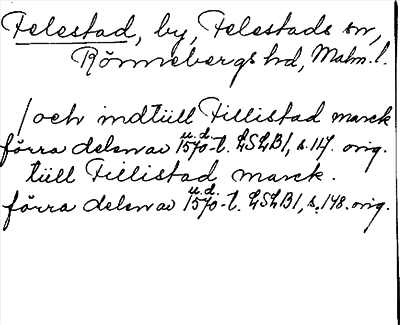 Felestad, by, Felestads sn,
Rönnebergs hd, Malm. l.
/och indtiill Fillistad marck
förra delen av u.d. 1570-t. LSLB1, s. 147. orig.
tiill Fillistad marck.
förra delen av u.d. 1570-t. LSLB1, s. 148. orig.